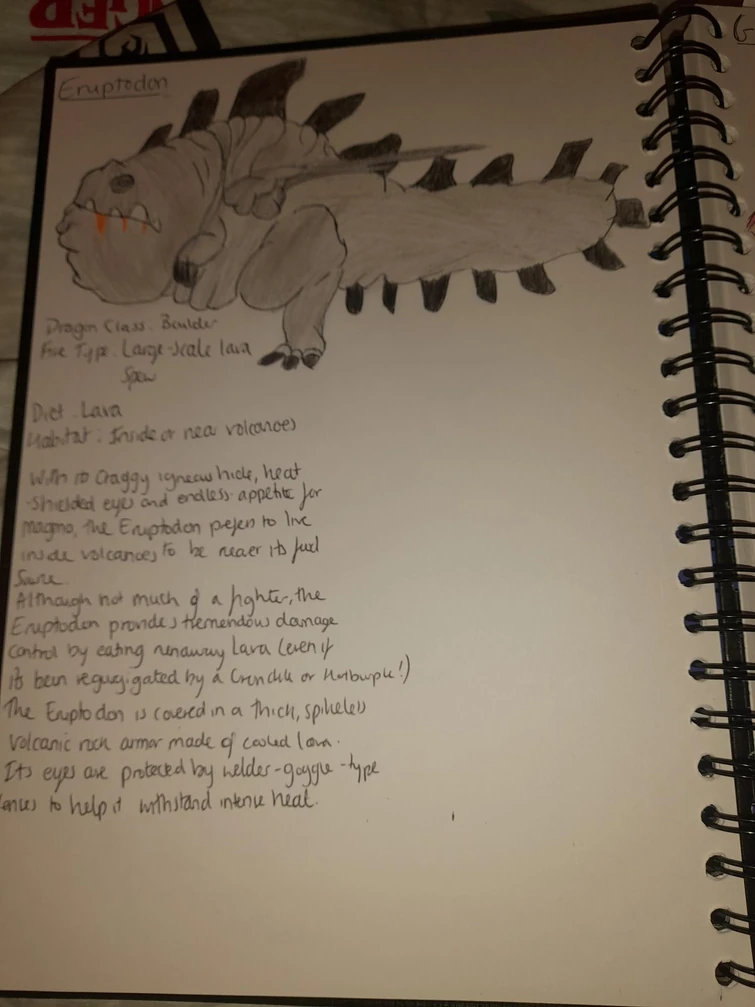 Eruptodon
Dragon Class. Boulder
Fire Type. Large-scale lava
Spew
Diet. Lava
Habitat: Inside or near volcanoes
With its Craggy igneous hide, heat
-shielded eyes and endless appetite for
magma, the Eruptodon prefers to live
inside volcanoes to be nearer its fuel
Source.
Although not much of a fighter, the
Eruptodon provides tremendous damage
control by eating runaway Lava (even if
its been regurgigated by a Gronckle or Hotburple!)
The Eruptodon is covered in a thick, spikeless
volcanic rock armor made of cooled lava.
Its eyes are protected by welder-goggle-type
lenses to help it withstand intense heat.
G